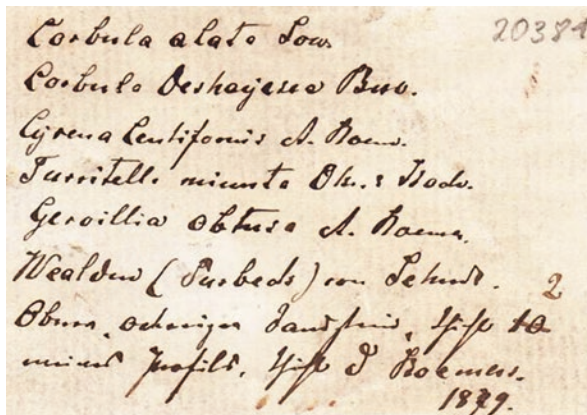 20384
Corbula alata Sow.
Corbula Deshayesea Buv.
Cyrena lentiformis A. Roem.
Turritella minuta Dk. & Koch.
Gervillia obtusa A. Roemer.
Wealden (Purbeck) von Sehnde. 2
Oberer, ockeriger Sandstein,
meines Profils. Roemers.
1879.